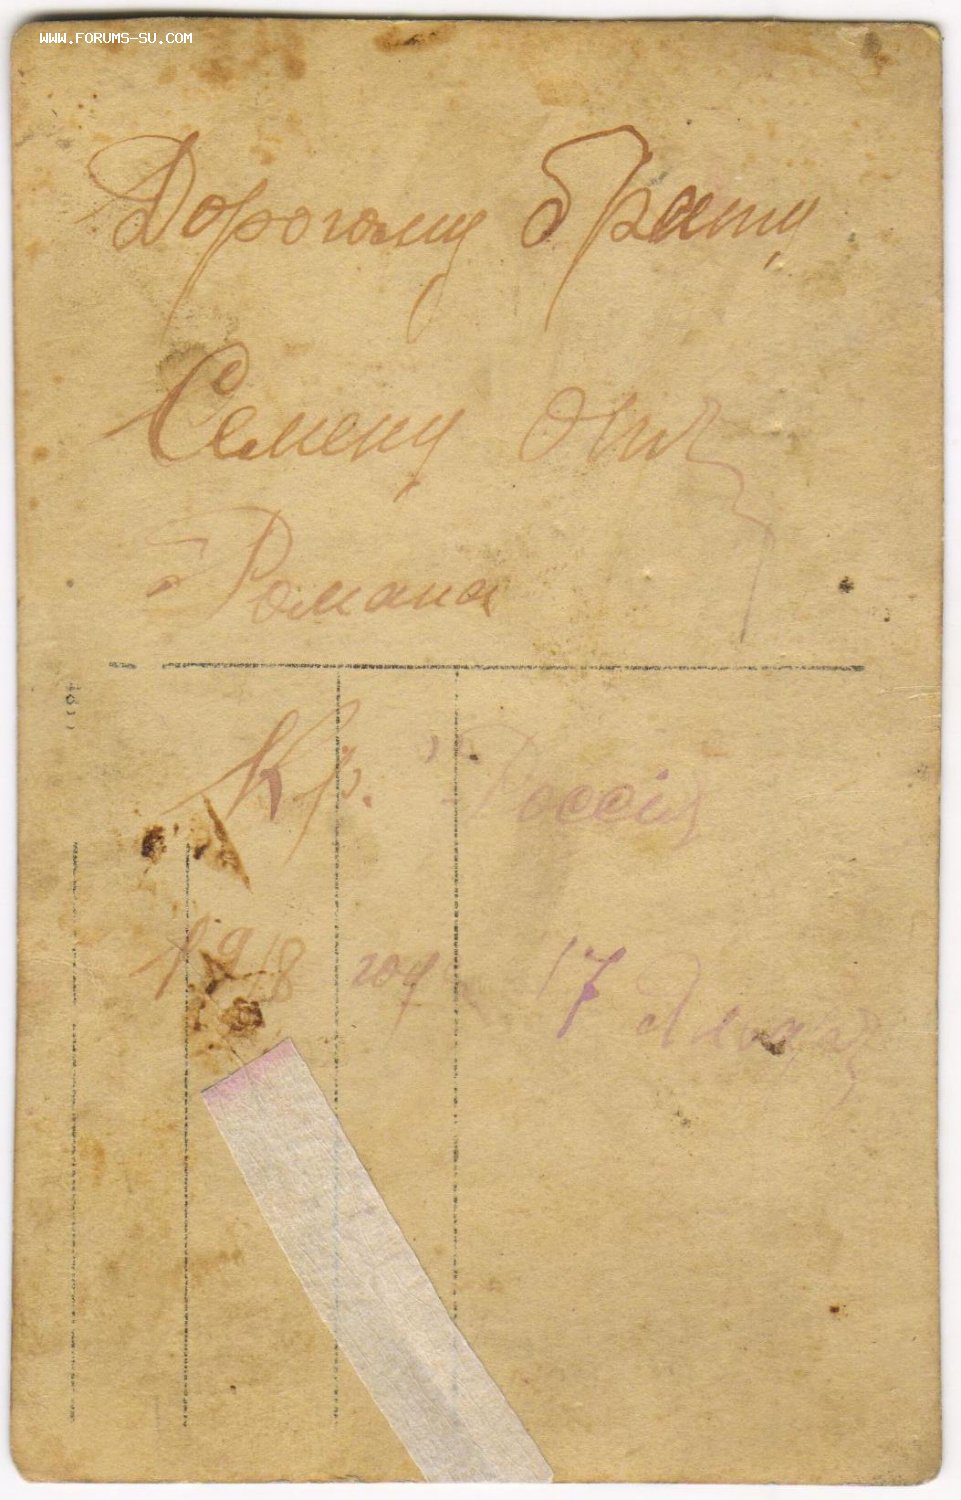 WWW.FORUMS-SU.COM
Дорогому брату
Семену от
Романа
Кр. "Россія
1918 год 17 Января